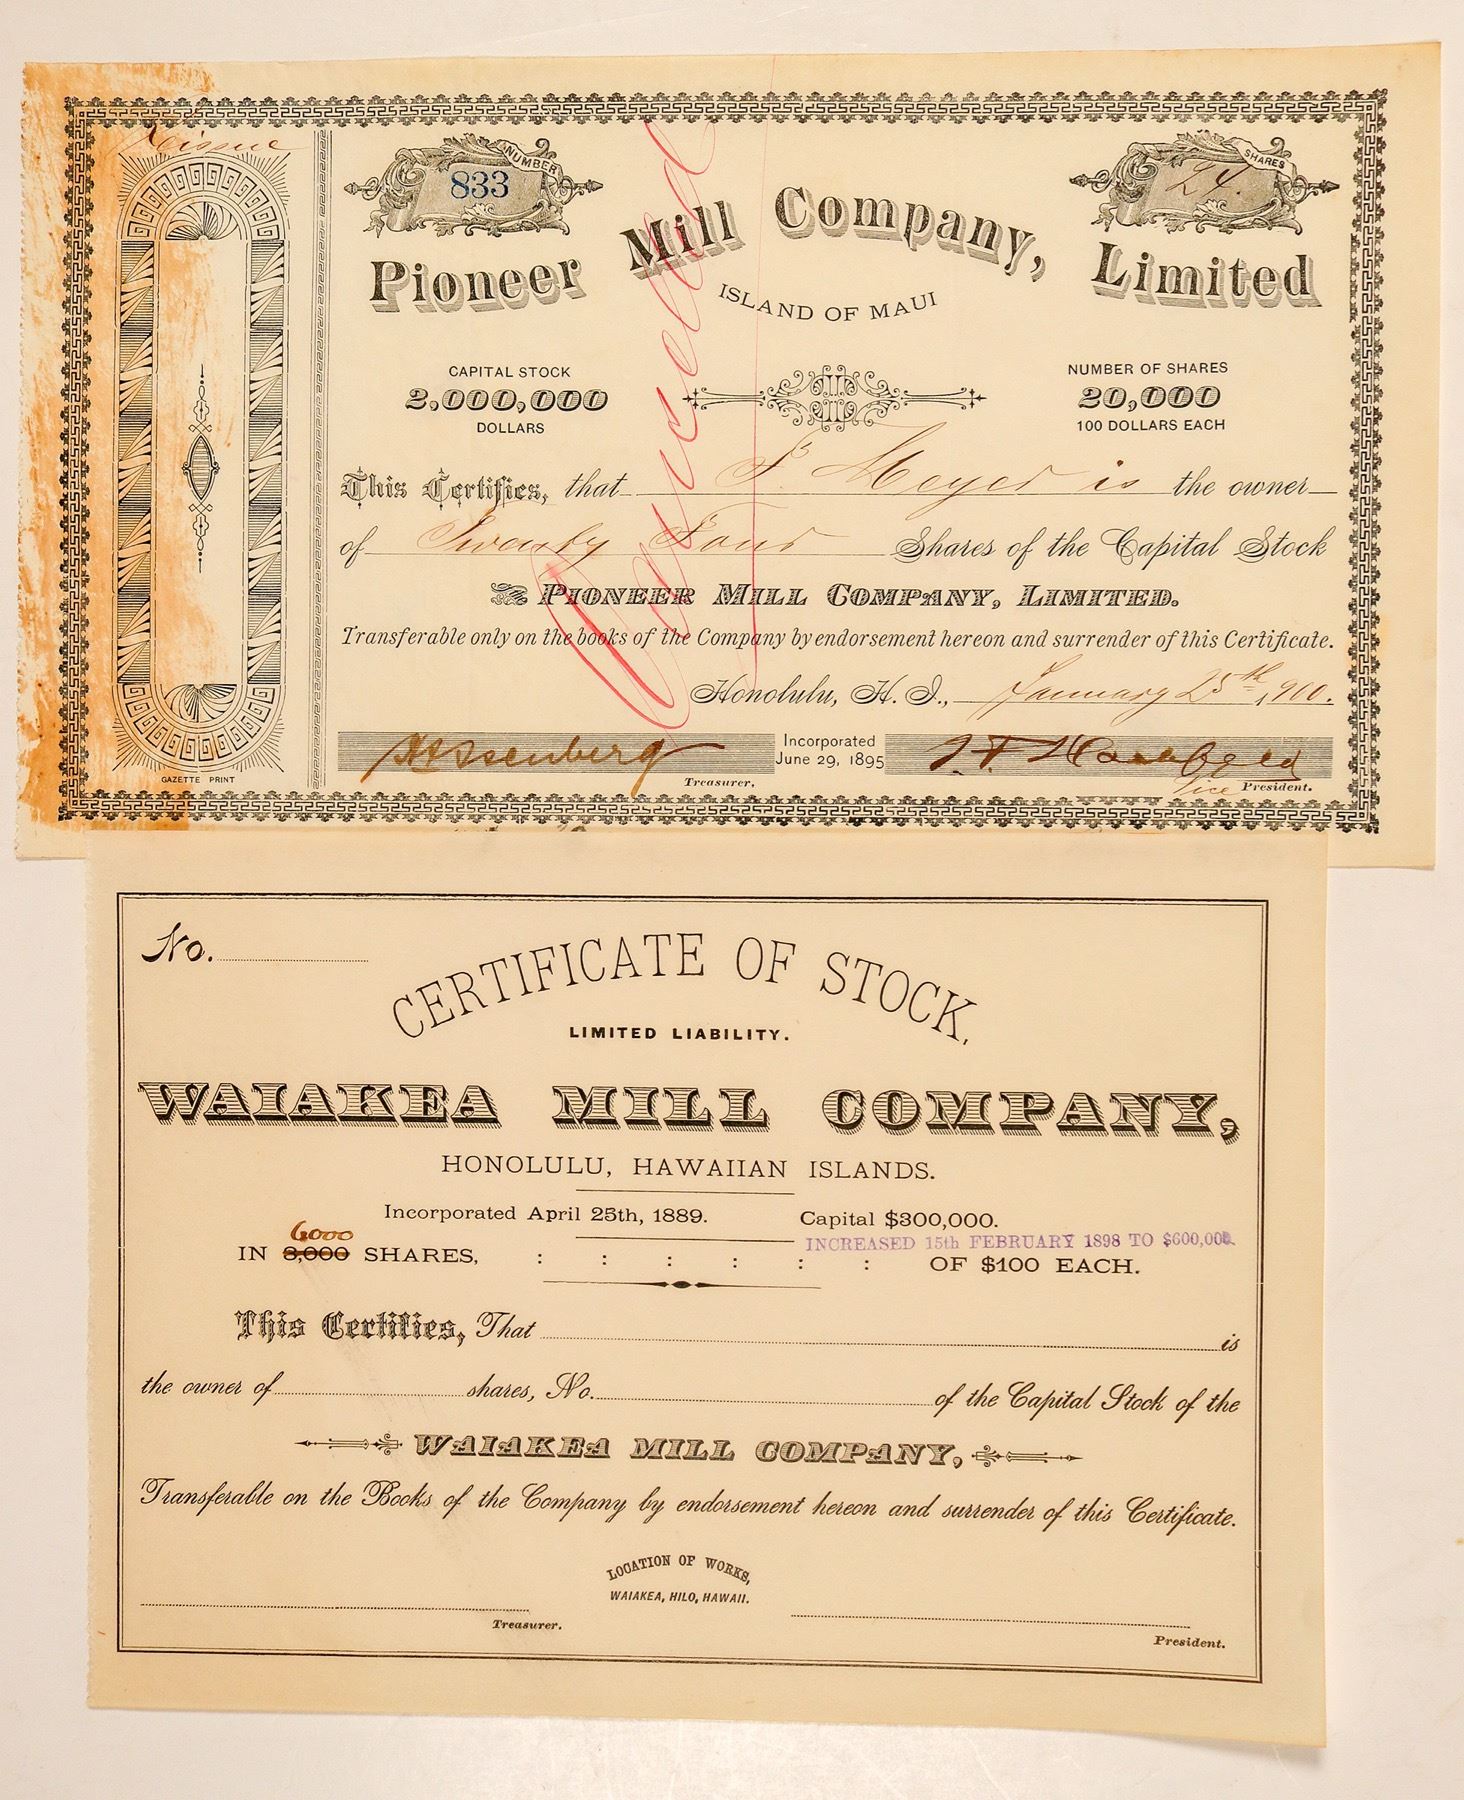 Reissue
NUMBER
833
SHARES
24.
Pioneer Mill Company, Limited
ISLAND OF MAUI
CAPITAL STOCK
2,000,000
DOLLARS
NUMBER OF SHARES
20,000
100 DOLLARS EACH
Cancelled
This Certifies, that Meyer is the owner
of Twenty Four Shares of the Capital Stock
PIONEER MILL COMPANY, LIMITED.
Transferable only on the books of the Company by endorsement hereon and surrender of this Certificate.
Honolulu, H. I., January 25th, 1900.
Incorporated
June 29, 1895
Treasurer.
Vice President.
GAZETTE PRINT
No.
CERTIFICATE OF STOCK,
LIMITED LIABILITY.
WAIAKEA MILL COMPANY,
HONOLULU, HAWAIIAN ISLANDS.
Incorporated April 25th, 1889. Capital $300,000.
INCREASED 15th FEBRUARY 1898 TO $600,000.
6000
IN 3,000 SHARES, : : : : : : OF $100 EACH.
This Certifies, That is
the owner of shares, No. of the Capital Stock of the
WAIAKEA MILL COMPANY,
Transferable on the Books of the Company by endorsement hereon and surrender of this Certificate.
LOCATION OF WORKS,
WAIAKEA, HILO, HAWAII.
Treasurer.
President.